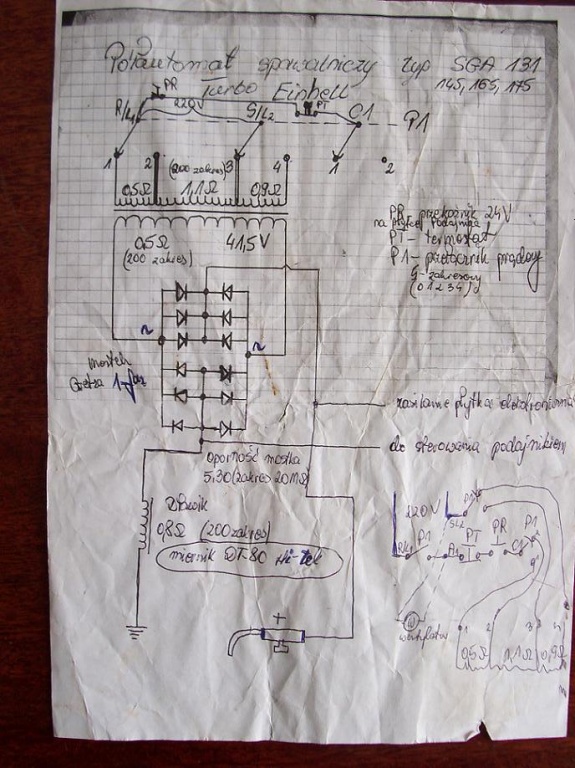 Półautomat spawalniczy typ SGA 131
145, 165, 175
Turbo Einhell
PR
220V
R/L1
S/L2
PT
C1
P1
1
2
(200 zakres)
3
4
1
2
0,5Ω
1,1Ω
0,9Ω
PR - przekaźnik 24V
na płytce podajnika
PT - termostat
P1 - przełącznik prądowy
4-zakresowy
(01234)
0,5Ω
41,5V
(200 zakres)
~
~
mostek
Gretza 1-faz
zasilanie płytka elektroniczna
do sterowania podajnikiem
oporność mostka
5.30 (zakres 20MΩ)
Dławik
0,8Ω (200 zakres)
miernik DT-80 Hi-Tek
+
220V
S/L2
P1
R/L1
P1
A1
PT
PR
C1
P1
wentylator
1
2
3
4
0,5Ω
1,1Ω
0,9Ω